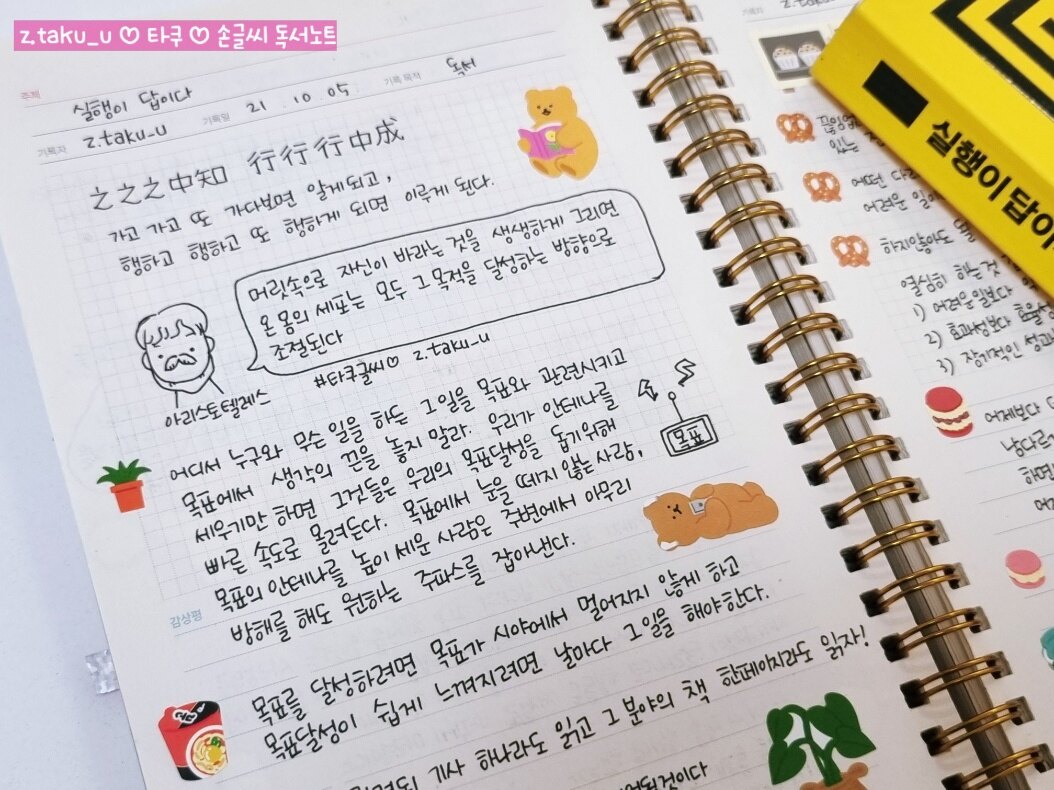 z.taku_u ♡ 타쿠 ♡ 손글씨 독서노트
주제 실행이 답이다
기록자 z.taku_u 기록일 21.10.05 기록 목적 독서
之之之中知 行行行中成
가고 가고 또 가다보면 알게되고,
행하고 행하고 또 행하게 되면 이루게 된다.
머릿속으로 자신이 바라는 것을 생생하게 그리면
온 몸의 세포는 모두 그 목적을 달성하는 방향으로
조절된다
아리스토텔레스
#타쿠글씨♡ z.taku_u
어디서 누구와 무슨 일을 하든 그 일을 목표와 관련시키고
목표에서 생각의 끈을 놓지 말라. 우리가 안테나를
세우기만 하면 그것들은 우리의 목표달성을 돕기위해
빠른 속도로 몰려든다. 목표에서 눈을 떼지 않는 사람,
목표의 안테나를 높이 세운 사람은 주변에서 아무리
방해를 해도 원하는 주파스를 잡아낸다.
목표
감상평
목표를 달성하려면 목표가 시야에서 멀어지지 않게 하고
목표달성이 쉽게 느껴지려면 날마다 그 일을 해야한다.
기사 하나라도 읽고 그 분야의 책 한페이지라도 읽자!
기록자 z.taku_u
끊임없
있는
어떤
어려운 일
하지않아도
열심히 하는 것
1) 어려운일보다
2) 효과성보다 효율성
3) 장기적인 성과
어제보다
남다르
하면
실행이 답이